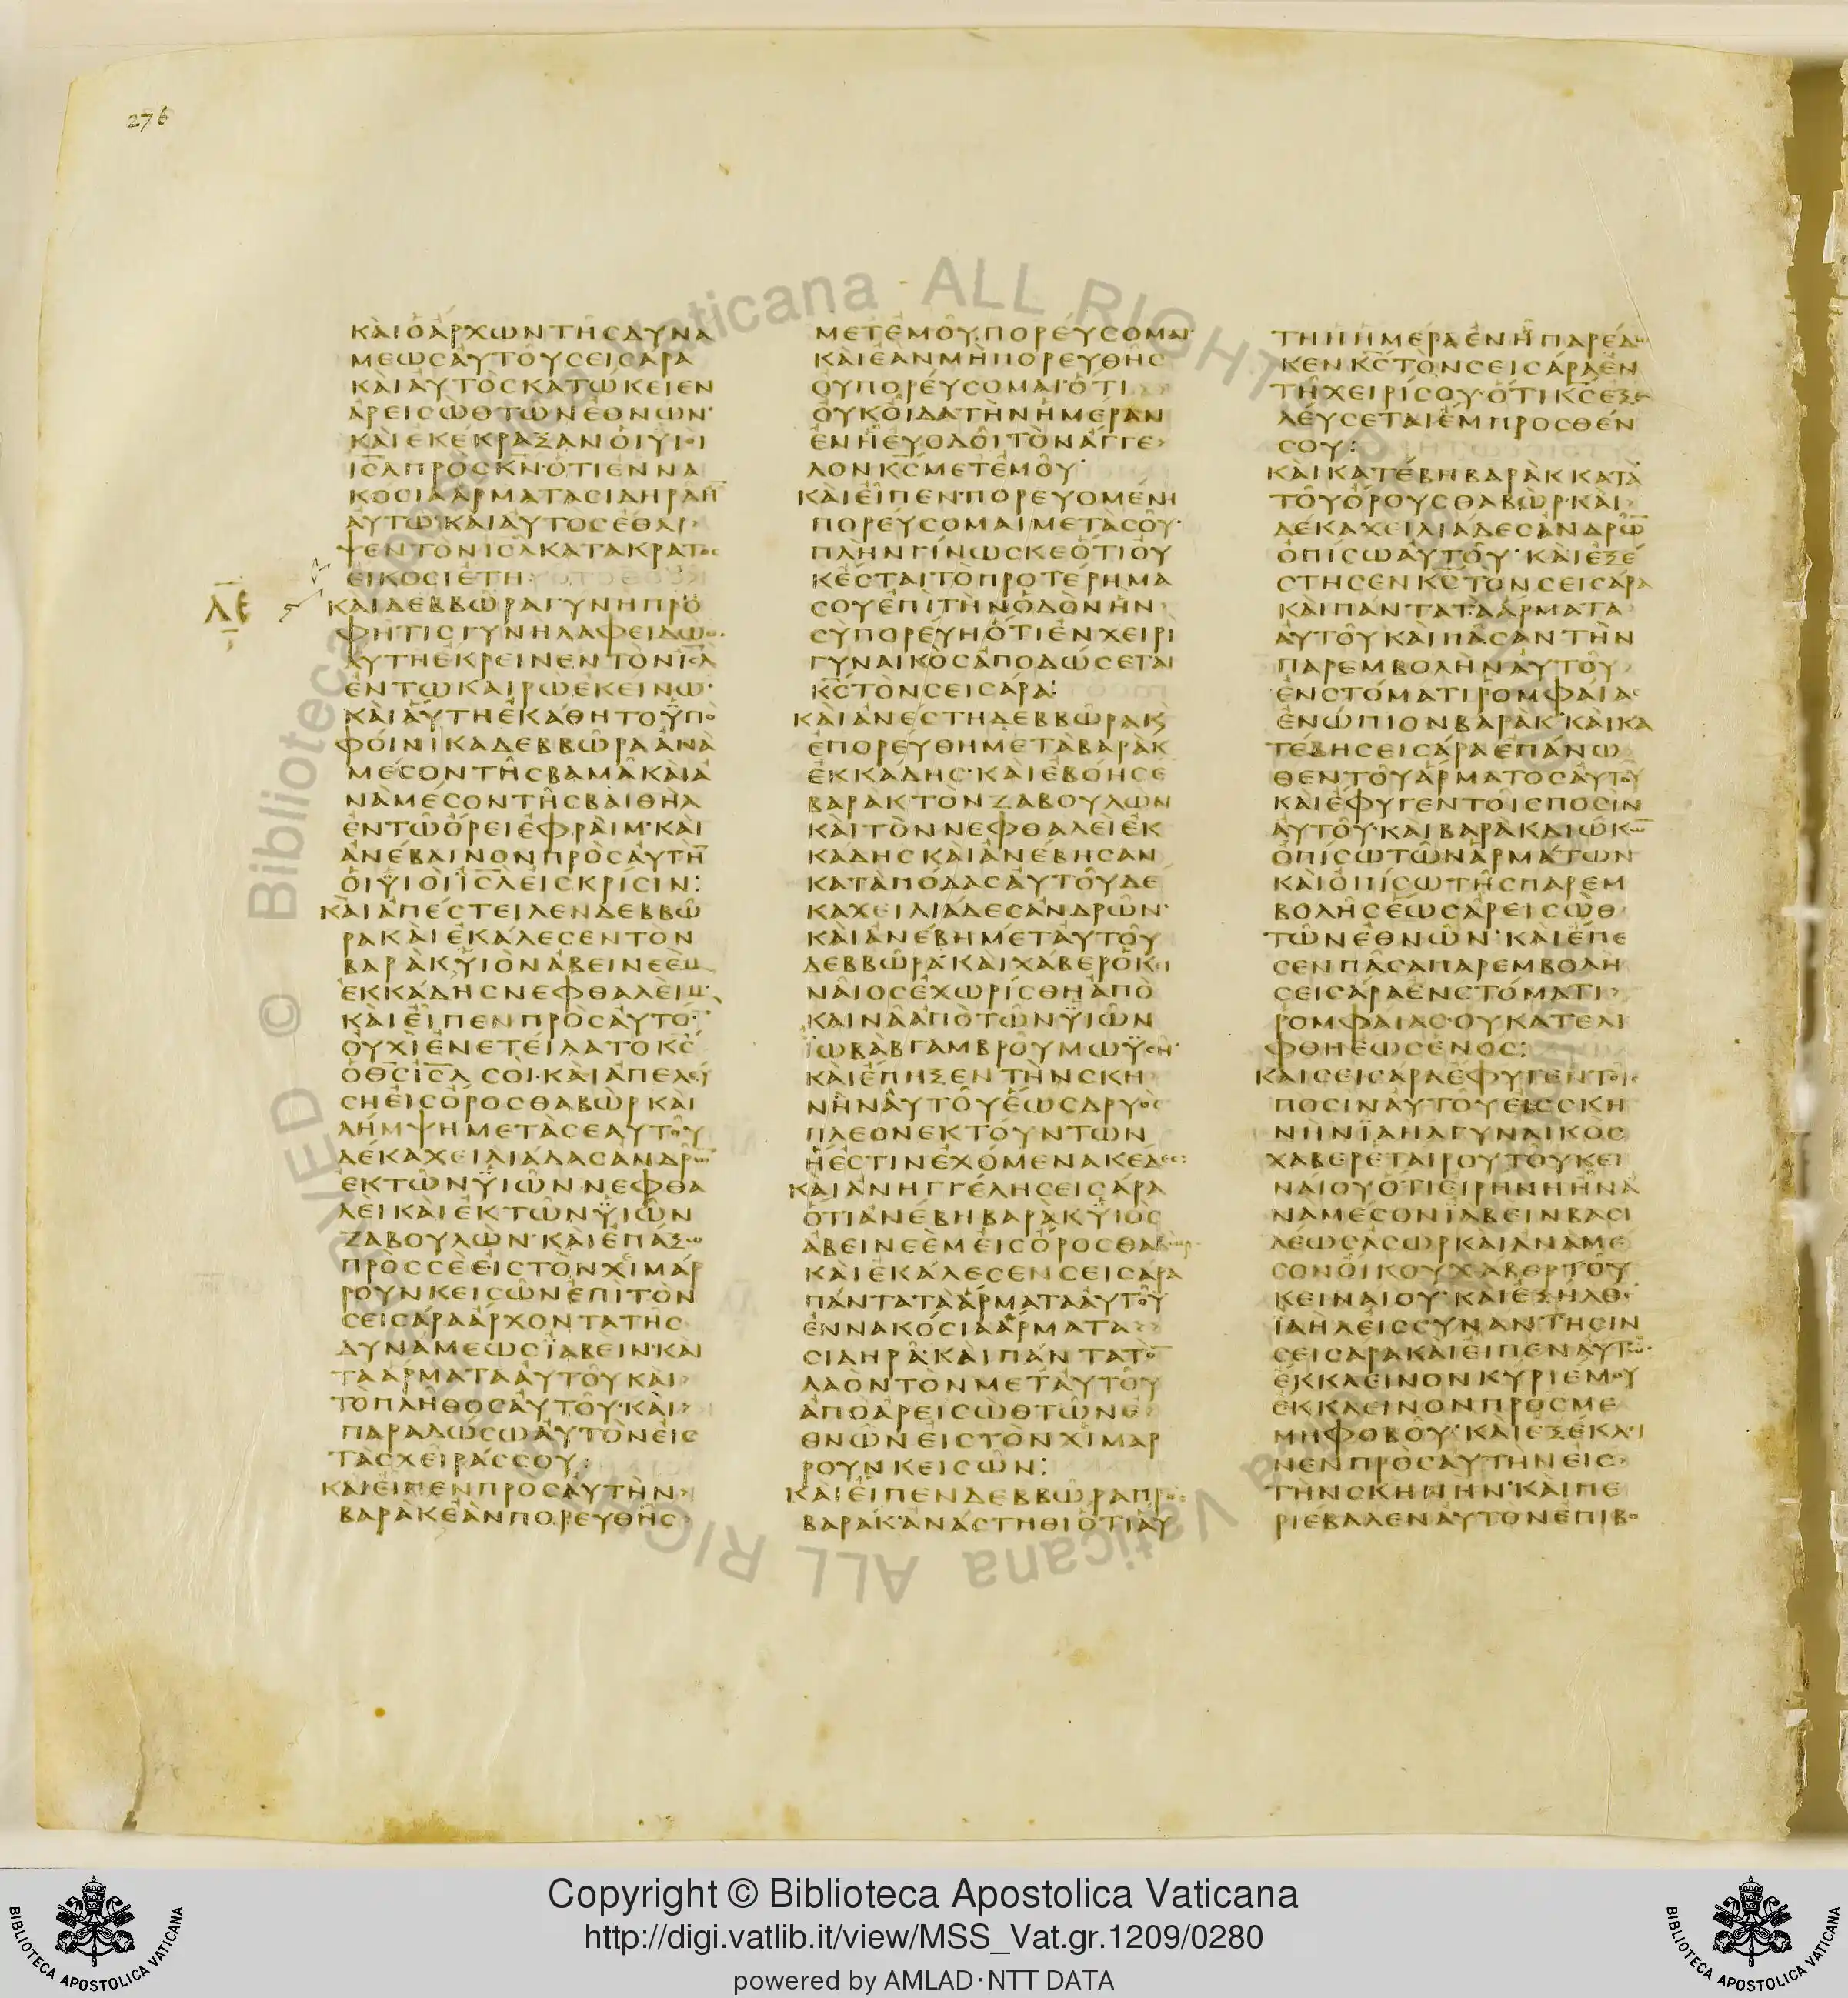 276
ΚΑΙΟΑΡΧΩΝΤΗСΔΥΝΑ
ΜΕΩСΑΥΤΟΥСΕΙСΑΡΑ
ΚΑΙΑΥΤΟСΚΑΤΩΚΕΙΕΝ
ΑΡΕΙСΩΘΤΩΝΕΘΝΩΝ·
ΚΑΙΕΚΕΚΡΑΞΑΝΟΙΥΙΟΙ
ΙС̅Λ̅ΠΡΟСΚ̅Ν̅·ΟΤΙΕΝΝΑ
ΚΟСΙΑΑΡΜΑΤΑСΙΔΗΡΑΗ̅
ΑΥΤΩ·ΚΑΙΑΥΤΟСΕΘΛΙ›
ΨΕΝΤΟΝΙС̅Λ̅ΚΑΤΑΚΡΑΤΟС
ΕΙΚΟСΙΕΤΗ:
Λ̅Ε̅
ΚΑΙΔΕΒΒΩΡΑΓΥΝΗΠΡΟ
ΦΗΤΙСΓΥΝΗΛΑΦΕΙΔΩΘ·
ΑΥΤΗΕΚΡΕΙΝΕΝΤΟΝΙС̅Λ̅
ΕΝΤΩΚΑΙΡΩΕΚΕΙΝΩ·
ΚΑΙΑΥΤΗΕΚΑΘΗΤΟΫΠΟ
ΦΟΙΝΙΚΑΔΕΒΒΩΡΑΑΝΑ
ΜΕСΟΝΤΗСΒΑΜΑΚΑΙΑ
ΝΑΜΕСΟΝΤΗСΒΑΙΘΗΛ
ΕΝΤΩΟΡΕΙΕΦΡΑΙΜ·ΚΑΙ
ΑΝΕΒΑΙΝΟΝΠΡΟСΑΥΤΗ̅
ΟΙΫΙΟΙΙС̅Λ̅ΕΙСΚΡΙСΙΝ:
ΚΑΙΑΠΕСΤΕΙΛΕΝΔΕΒΒΩ
ΡΑΚΑΙΕΚΑΛΕСΕΝΤΟΝ
ΒΑΡΑΚΫΙΟΝΑΒΕΙΝΕΕΜ
ΕΚΚΑΔΗСΝΕΦΘΑΛΕΙΜ·
ΚΑΙΕΙΠΕΝΠΡΟСΑΥΤΟ̅·
ΟΥΧΙΕΝΕΤΕΙΛΑΤΟΚ̅С̅
ΟΘ̅С̅Ι̅С̅Λ̅СΟΙ·ΚΑΙΑΠΕΛΕΥ
СΗΕΙСΟΡΟСΘΑΒΩΡΚΑΙ
ΛΗΜΨΗΜΕΤΑСΕΑΥΤΟΥ
ΔΕΚΑΧΕΙΛΙΑΔΑСΑΝΔΡΩ̅
ΕΚΤΩΝΫΙΩΝΝΕΦΘΑ
ΛΕΙΚΑΙΕΚΤΩΝΫΙΩΝ
ΖΑΒΟΥΛΩΝ·ΚΑΙΕΠΑΞΩ
ΠΡΟССΕΕΙСΤΟΝΧΙΜΑΡ
ΡΟΥΝΚΕΙСΩΝΕΠΙΤΟΝ
СΕΙСΑΡΑΑΡΧΟΝΤΑΤΗС
ΔΥΝΑΜΕΩСΪΑΒΕΙΝ·ΚΑΙ
ΤΑΑΡΜΑΤΑΑΥΤΟΥΚΑΙ›
ΤΟΠΛΗΘΟСΑΥΤΟΥ·ΚΑΙ›
ΠΑΡΑΔΩСΩΑΥΤΟΝΕΙС
ΤΑСΧΕΙΡΑССΟΥ:
ΚΑΙΕΙΠΕΝΠΡΟСΑΥΤΗΝ›
ΒΑΡΑΚΕΑΝΠΟΡΕΥΘΗС›
ΜΕΤΕΜΟΥΠΟΡΕΥСΟΜΑΙ·
ΚΑΙΕΑΝΜΗΠΟΡΕΥΘΗС
ΟΥΠΟΡΕΥСΟΜΑΙ·ΟΤΙ
ΟΥΚΟΙΔΑΤΗΝΗΜΕΡΑΝ
ΕΝΗΕΥΟΔΟΙΤΟΝΑΓΓΕ›
ΛΟΝΚ̅С̅ΜΕΤΕΜΟΥ·
ΚΑΙΕΙΠΕΝ·ΠΟΡΕΥΟΜΕΝΗ
ΠΟΡΕΥСΟΜΑΙΜΕΤΑСΟΥ·
ΠΛΗΝΓΙΝΩСΚΕΟΤΙΟΥ
ΚΕСΤΑΙΤΟΠΡΟΤΕΡΗΜΑ
СΟΥΕΠΙΤΗΝΟΔΟΝΗΝ
СΥΠΟΡΕΥΗΟΤΙΕΝΧΕΙΡΙ
ΓΥΝΑΙΚΟСΑΠΟΔΩСΕΤΑΙ
Κ̅С̅ΤΟΝСΕΙСΑΡΑ:
ΚΑΙΑΝΕСΤΗΔΕΒΒΩΡΑΚϚ
ΕΠΟΡΕΥΘΗΜΕΤΑΒΑΡΑΚ
ΕΚΚΑΔΗС·ΚΑΙΕΒΟΗСΕ
ΒΑΡΑΚΤΟΝΖΑΒΟΥΛΩΝ
ΚΑΙΤΟΝΝΕΦΘΑΛΕΙΕΚ
ΚΑΔΗСΚΑΙΑΝΕΒΗСΑΝ
ΚΑΤΑΠΟΔΑСΑΥΤΟΥΔΕ
ΚΑΧΕΙΛΙΑΔΕСΑΝΔΡΩΝ·
ΚΑΙΑΝΕΒΗΜΕΤΑΥΤΟΥ
ΔΕΒΒΩΡΑ·ΚΑΙΧΑΒΕΡΟΚΕΙ
ΝΑΙΟСΕΧΩΡΙСΘΗΑΠΟ
ΚΑΙΝΑΑΠΟΤΩΝΫΙΩΝ
ΪΩΒΑΒΓΑΜΒΡΟΥΜΩΫСΗ·
ΚΑΙΕΠΗΞΕΝΤΗΝСΚΗ
ΝΗΝΑΥΤΟΥΕΩСΔΡΥΟС
ΠΛΕΟΝΕΚΤΟΥΝΤΩΝ
ΗΕСΤΙΝΕΧΟΜΕΝΑΚΕΔΕС:
ΚΑΙΑΝΗΓΓΕΛΗСΕΙСΑΡΑ
ΟΤΙΑΝΕΒΗΒΑΡΑΚΫΙΟС
ΑΒΕΙΝΕΕΜΕΙСΟΡΟСΘΑΒΩΡ
ΚΑΙΕΚΑΛΕСΕΝСΕΙСΑΡΑ
ΠΑΝΤΑΤΑΑΡΜΑΤΑΑΥΤΟΥ
ΕΝΝΑΚΟСΙΑΑΡΜΑΤΑ››
СΙΔΗΡΑ·ΚΑΙΠΑΝΤΑΤΟ̅
ΛΑΟΝΤΟΝΜΕΤΑΥΤΟΥ
ΑΠΟΑΡΕΙСΩΘΤΩΝΕ›
ΘΝΩΝΕΙСΤΟΝΧΙΜΑΡ
ΡΟΥΝΚΕΙСΩΝ:
ΚΑΙΕΙΠΕΝΔΕΒΒΩΡΑΠΡΟС
ΒΑΡΑΚ·ΑΝΑСΤΗΘΙΟΤΙΑΥ
ΤΗΗΗΜΕΡΑΕΝΗΠΑΡΕΔΩ
ΚΕΝΚ̅С̅ΤΟΝСΕΙСΑΡΑΕΝ
ΤΗΧΕΙΡΙСΟΥ·ΟΤΙΚ̅С̅ΕΞΕ
ΛΕΥСΕΤΑΙΕΜΠΡΟСΘΕΝ
СΟΥ:
ΚΑΙΚΑΤΕΒΗΒΑΡΑΚΚΑΤΑ
ΤΟΥΟΡΟΥСΘΑΒΩΡ·ΚΑΙ›
ΔΕΚΑΧΕΙΛΙΑΔΕСΑΝΔΡΩ̅
ΟΠΙСΩΑΥΤΟΥ·ΚΑΙΕΞΕ
СΤΗСΕΝΚ̅С̅ΤΟΝСΕΙСΑΡΑ
ΚΑΙΠΑΝΤΑΤΑΑΡΜΑΤΑ
ΑΥΤΟΥΚΑΙΠΑСΑΝΤΗΝ
ΠΑΡΕΜΒΟΛΗΝΑΥΤΟΥ
ΕΝСΤΟΜΑΤΙΡΟΜΦΑΙΑС
ΕΝΩΠΙΟΝΒΑΡΑΚ·ΚΑΙΚΑ
ΤΕΒΗСΕΙСΑΡΑΕΠΑΝΩ
ΘΕΝΤΟΥΑΡΜΑΤΟСΑΥΤΟΥ
ΚΑΙΕΦΥΓΕΝΤΟΙСΠΟСΙΝ
ΑΥΤΟΥ·ΚΑΙΒΑΡΑΚΔΙΩΚΩ̅
ΟΠΙСΩΤΩΝΑΡΜΑΤΩΝ
ΚΑΙΟΠΙСΩΤΗСΠΑΡΕΜ
ΒΟΛΗСΕΩСΑΡΕΙСΩΘ
ΤΩΝΕΘΝΩΝ·ΚΑΙΕΠΕ
СΕΝΠΑСΑΠΑΡΕΜΒΟΛΗ
СΕΙСΑΡΑΕΝСΤΟΜΑΤΙ›
ΡΟΜΦΑΙΑС·ΟΥΚΑΤΕΛΙ
ΦΘΗΕΩСΕΝΟС:
ΚΑΙСΕΙСΑΡΑΕΦΥΓΕΝΤΟΙС
ΠΟСΙΝΑΥΤΟΥΕΙССΚΗ
ΝΗΝΪΑΗΛΓΥΝΑΙΚΟС
ΧΑΒΕΡΕΤΑΙΡΟΥΤΟΥΚΕΙ
ΝΑΙΟΥΟΤΙΕΙΡΗΝΗΗΝΑ
ΝΑΜΕСΟΝΪΑΒΕΙΝΒΑСΙ
ΛΕΩСΑСΩΡΚΑΙΑΝΑΜΕ
СΟΝΟΙΚΟΥΧΑΒΕΡΤΟΥ
ΚΕΙΝΑΙΟΥ·ΚΑΙΕΞΗΛΘΕ
ΪΑΗΛΕΙССΥΝΑΝΤΗСΙΝ
СΕΙСΑΡΑΚΑΙΕΙΠΕΝΑΥΤΩ·
ΕΚΚΛΕΙΝΟΝΚΥΡΙΕΜΟΥ
ΕΚΚΛΕΙΝΟΝΠΡΟСΜΕ
ΜΗΦΟΒΟΥ·ΚΑΙΕΞΕΚΛΙ
ΝΕΝΠΡΟСΑΥΤΗΝΕΙС›
ΤΗΝСΚΗΝΗΝ·ΚΑΙΠΕ
ΡΙΕΒΑΛΕΝΑΥΤΟΝΕΠΙΒΟ
© Biblioteca Apostolica Vaticana ALL RIGHTS RESERVED
Copyright © Biblioteca Apostolica Vaticana
http://digi.vatlib.it/view/MSS_Vat.gr.1209/0280
powered by AMLAD·NTT DATA
BIBLIOTECA APOSTOLICA VATICANA
BIBLIOTECA APOSTOLICA VATICANA